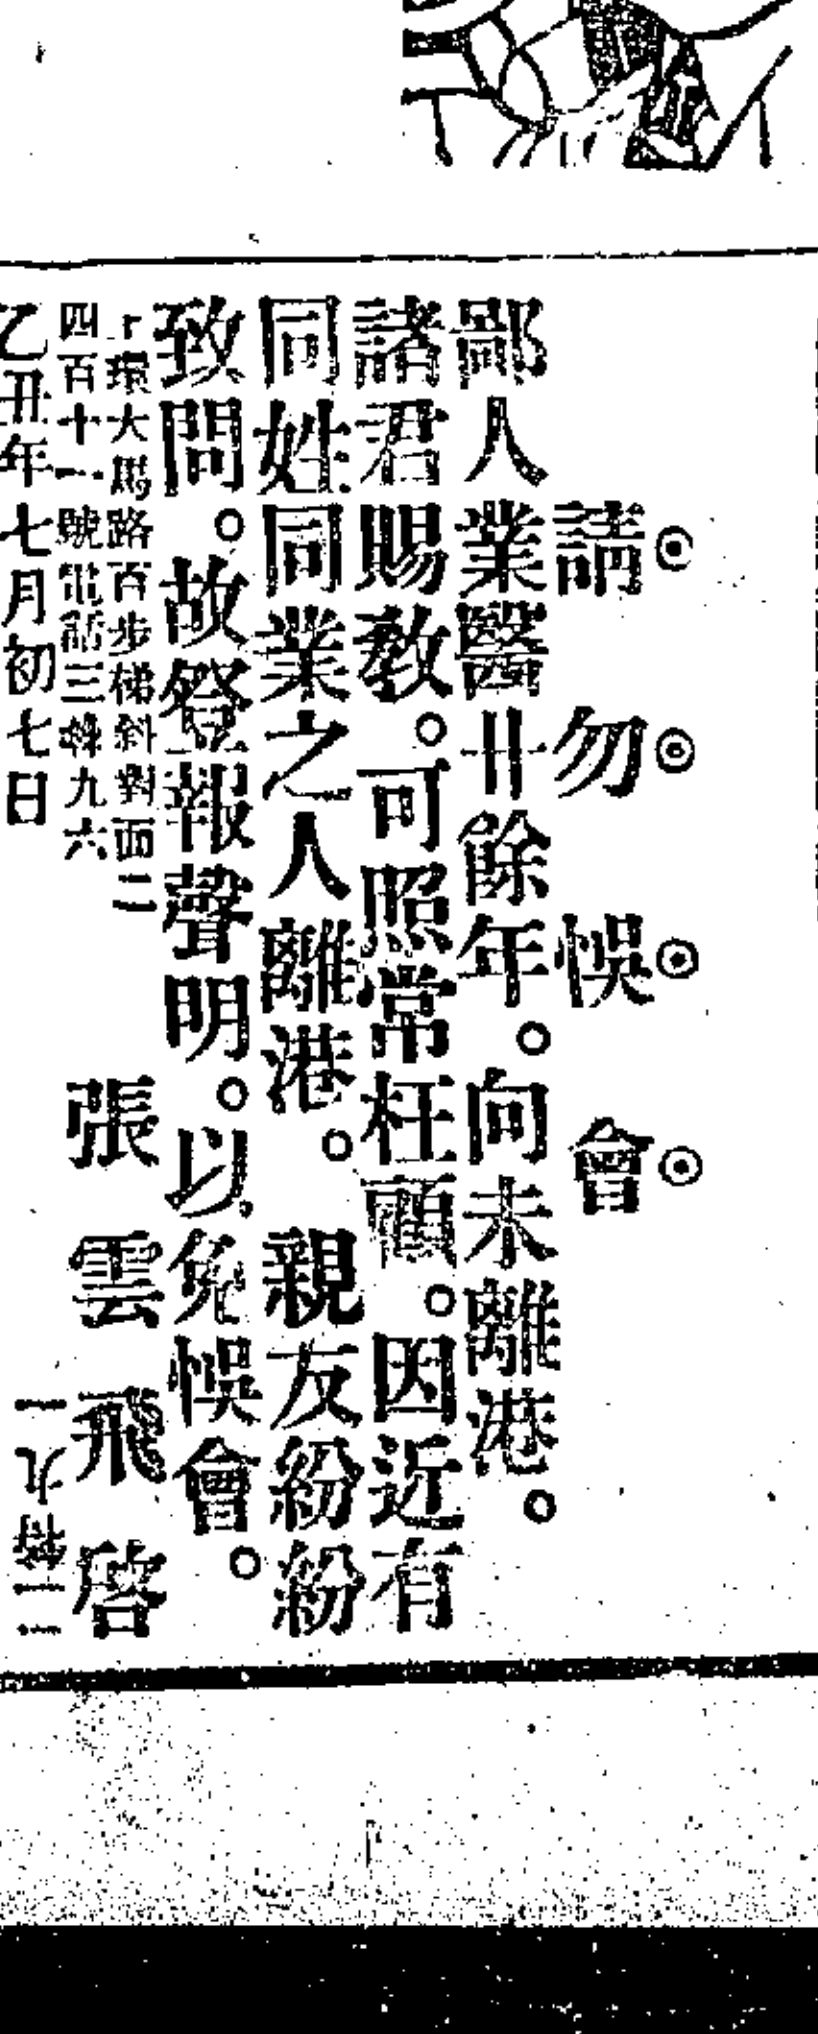 ◎請◎勿◎悞◎會
鄙人業醫廿餘年。向未離港。
諸君賜教。可照常枉顧。因近有
同姓同業之人離港。親友紛紛
致問。故登報聲明。以免悞會。
上環大馬路百步梯斜對面二
四百十一號電話三零九六
張雲飛啓
乙丑年七月初七日
一九